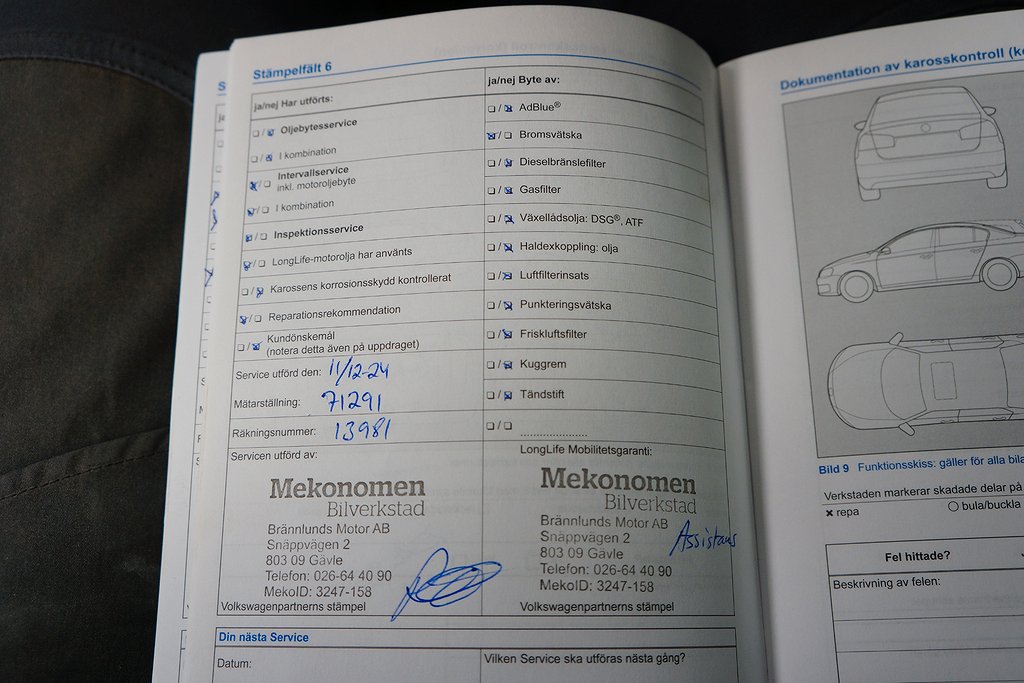 Stämpelfält 6
ja/nej Har utförts:
Oljebytesservice
I kombination
Intervallservice
inkl. motoroljebyte
I kombination
Inspektionsservice
LongLife-motorolja har använts
Karossens korrosionsskydd kontrollerat
Reparationsrekommendation
Kundönskemål
(notera detta även på uppdraget)
Service utförd den: 11/12-24
Mätarställning: 71291
Räkningsnummer: 13981
Servicen utförd av:
Mekonomen
Bilverkstad
Brännlunds Motor AB
Snäppvägen 2
803 09 Gävle
Telefon: 026-64 40 90
MekoID: 3247-158
Volkswagenpartnerns stämpel
ja/nej Byte av:
AdBlue®
Bromsvätska
Dieselbränslefilter
Gasfilter
Växellådsolja: DSG®, ATF
Haldexkoppling: olja
Luftfilterinsats
Punkteringsvätska
Friskluftsfilter
Kuggrem
Tändstift
LongLife Mobilitetsgaranti:
Mekonomen
Bilverkstad
Brännlunds Motor AB
Snäppvägen 2
Assistans
803 09 Gävle
Telefon: 026-64 40 90
MekoID: 3247-158
Volkswagenpartnerns stämpel
Din nästa Service
Datum:
Vilken Service ska utföras nästa gång?
Dokumentation av karosskontroll (k
Bild 9 Funktionsskiss: gäller för alla bila
Verkstaden markerar skadade delar på
× repa
bula/buckla
Fel hittade?
Beskrivning av felen: